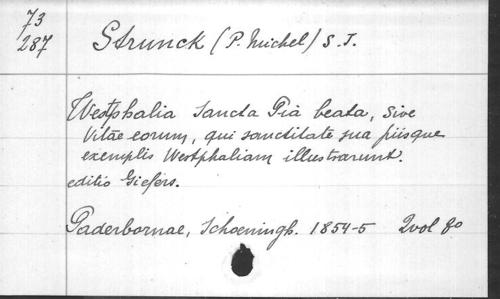 73
287
Strunck (P. Michel) S. J.
Westphalia Sancta Pia beata, Sive
Vitae eorum, qui sanctitate sua piisque
exemplis Westphaliam illustrarunt.
editio Giefers.
Paderbornae, Schoeningh. 1854-5 2vol 8o